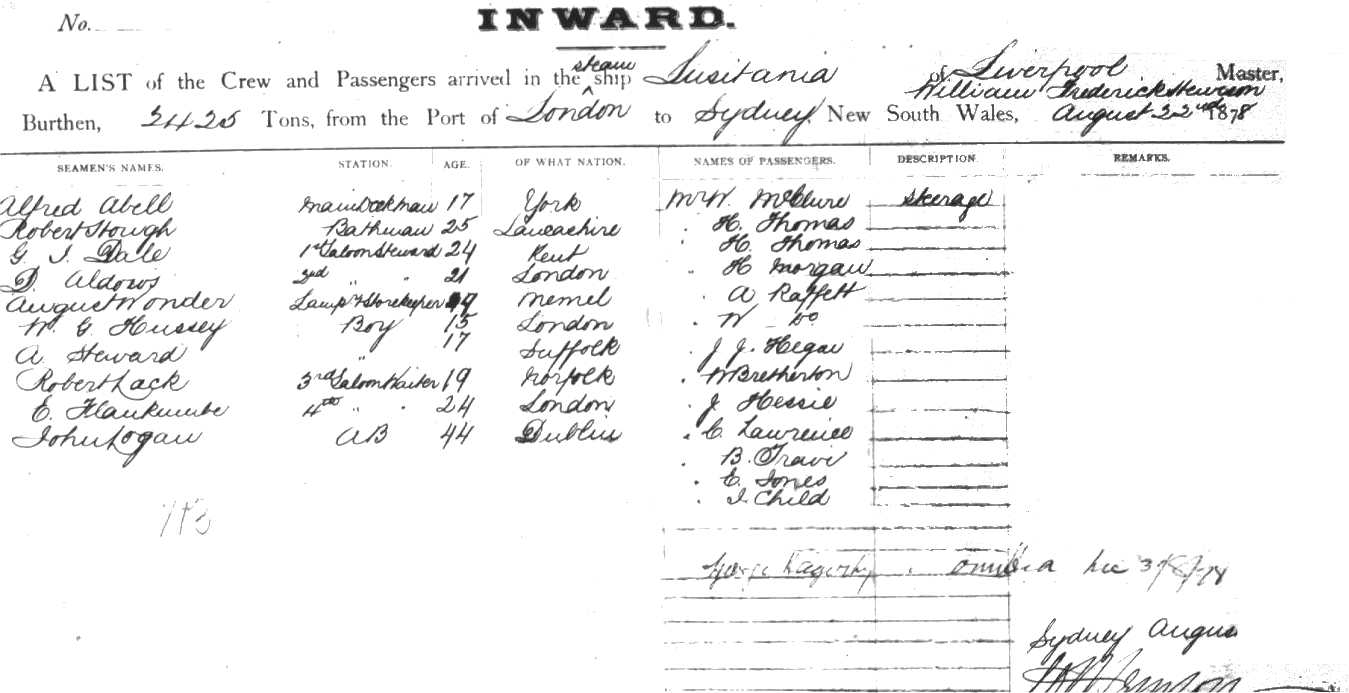 No.
INWARD.
A LIST of the Crew and Passengers arrived in the steam ship Lusitania of Liverpool William Frederick Hewison Master,
Burthen, 2425 Tons, from the Port of London to Sydney, New South Wales, August 22nd 1878
SEAMEN'S NAMES. STATION. AGE. OF WHAT NATION. NAMES OF PASSENGERS. DESCRIPTION. REMARKS.
Alfred Abell 17 York Mr W. McClure steerage
Robert Bathman 25 Lancashire H. Thomas
G. J. Dale 1st Saloon Steward 24 Kent H. Thomas
D. Aldows 2nd " 21 London H Morgan
August Wonder Lamp & Storekeeper Memel A Raffett
W. G. Hussey Boy 15 London W Do
A. Steward " 17 Suffolk J J. Hegan
Robert Lack 3rd Saloon Waiter 19 Norfolk W Bretherton
E. 4th " 24 London J Hessie
John Logan AB 44 Dublin C. Lawrence
B. Travi
E. Jones
J. Child
George Hagerty
Sydney Augus